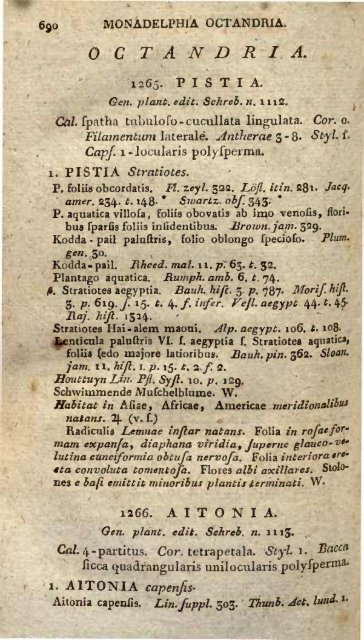 690 MONADELPHIA OCTANDRIA.
OCTANDRIA.
1265. PISTIA.
Gen. plant. edit. Schreb. n. 1112.
Cal. ſpatha tubuloſo-cucullata lingulata. Cor. 0.
Filamentum laterale. Antherae 3-8. Styl. 1.
Capſ. 1-locularis polyſperma.
1. PISTIA Stratiotes.
P. foliis obcordatis. Fl. zeyl. 322. Löfl. itin. 281. Jacq.
amer. 234. t. 148. Swartz. obſ. 343.
P. aquatica villoſa, foliis obovatis ab imo venoſis, flori-
bus ſparſis foliis inſidentibus. Brown. jam. 329.
Kodda-pail paluſtris, folio oblongo ſpecioſo. Plum.
gen. 30.
Kodda-pail. Rheed. mal. 11. p. 63. t. 32.
Plantago aquatica. Rumph. amb. 6. t. 74.
β. Stratiotes aegyptia. Bauh. hiſt. 3. p. 787. Moriſ. hiſt.
3. p. 619. ſ. 15. t. 4. f. infer. Veſl. aegypt 44. t. 45.
Raj. hiſt. 1324.
Stratiotes Hai-alem maoni. Alp. aegypt. 106. t. 108.
Lenticula paluſtris VI. ſ. aegyptia ſ. Stratiotes aquatica,
foliis ſedo majore latioribus. Bauh. pin. 362. Sloan.
jam. 11. hiſt. 1. p. 15. t. 2. f. 2.
Houttuyn Lin. Pfl. Syſt. 10. p. 129.
Schwimmende Muſchelblume. W.
Habitat in Aſiae, Africae, Americae meridionalibus
natans. ♃ (v. ſ.)
Radiculis Lemnae inſtar natans. Folia in roſae for-
mam expanſa, diaphana viridia, ſuperne glauco-ve-
lutina cuneiformia obtuſa nervoſa. Folia interiora ere-
cta convoluta tomentoſa. Flores albi axillares. Stolo-
nes e baſi emittit minoribus plantis terminati. W.
1266. AITONIA.
Gen. plant. edit. Schreb. n. 1113.
Cal. 4-partitus. Cor. tetrapetala. Styl. 1. Bacca
ſicca quadrangularis unilocularis polyſperma.
1. AITONIA capenſis.
Aitonia capenſis. Lin. ſuppl. 303. Thunb. Act. lund. 1.